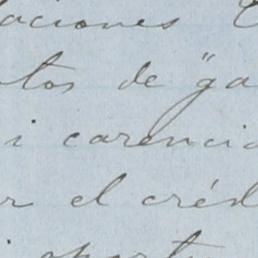 aciones
tos de "ga
i carencia
r el créd